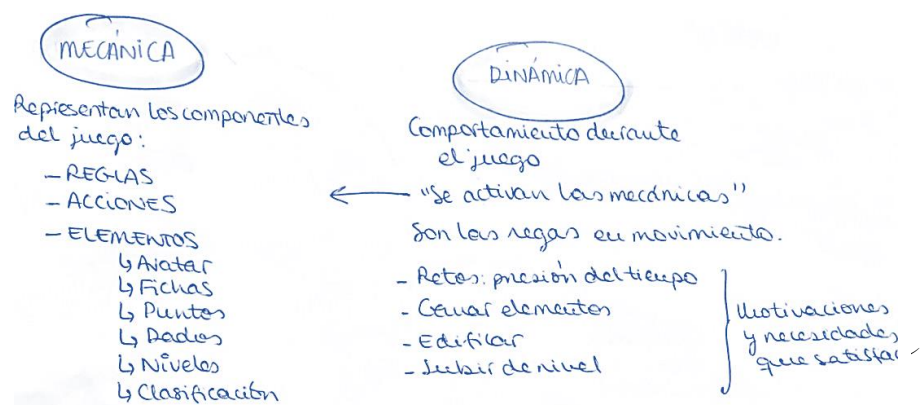 MECÁNICA
Representan los componentes
del juego:
- REGLAS
- ACCIONES
- ELEMENTOS
↳ Avatar
↳ Fichas
↳ Puntos
↳ Dados
↳ Niveles
↳ Clasificación
DINÁMICA
Comportamiento durante
el juego
← "Se activan las mecánicas"
Son las regas en movimiento.
- Retos: presión del tiempo
- Ganar elementos
- Edificar
- Subir de nivel
Motivaciones
y necesidades
que satisfac